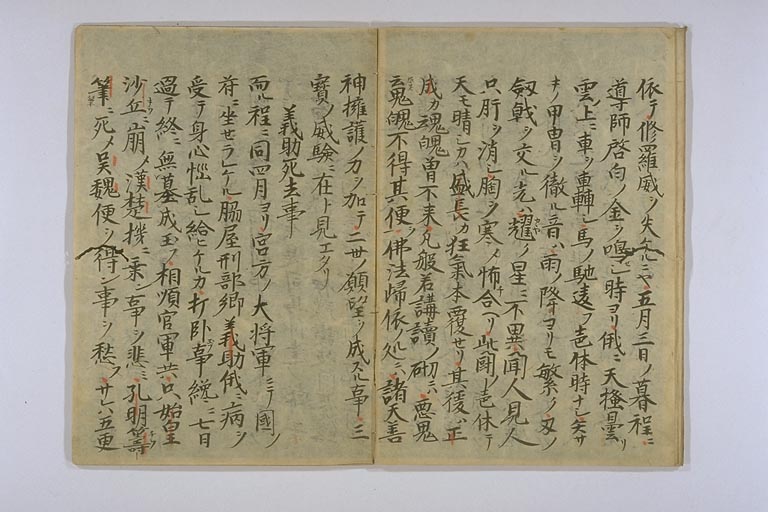 依テ修羅威ヲ失ケルニヤ五月三日ノ暮程ニ
導師啓白ノ金ヲ鳴シ時ヨリ俄ニ天掻曇リ
雲上ニ車ヲ轟シ馬ノ馳違フ音休時ナシ矢サ
キノ甲冑ヲ徹ル音ハ雨ノ降ヨリモ繁ク刃ノ
剱戟ヲ交ル光ハ耀ク星ニ不異聞人見人
只肝ヲ消シ胸ヲ寒メ怖合ヘリ此闘ノ音休テ
天モ晴シカハ盛長カ狂氣本覆セリ其後ハ正
成カ魂魄曽不来凡般若講讀ノ砌ニハ悪鬼
魂魄不得其便佛法帰依ノ処ニハ諸天善
神擁護ノ力ヲ加テ二世ノ願望ヲ成スル事ハ三
寳ノ威験ニ在ト見エタリ
義助死去事
而ル程ニ同四月ヨリ宮方ノ大将軍ニテ國ノ
府ニ坐セラレケル脇屋刑部卿義助俄ニ病ヲ
受テ身心悩乱シ給ヒケルカ打卧事纔ニ七日
過テ終ニ無墓成玉フ相順官軍共只始皇
沙丘ニ崩メ漢楚機ニ乗シ事ヲ悲ミ孔明籌
筆ニ死メ呉魏便ヲ得シ事ヲ愁フ サレハ五更